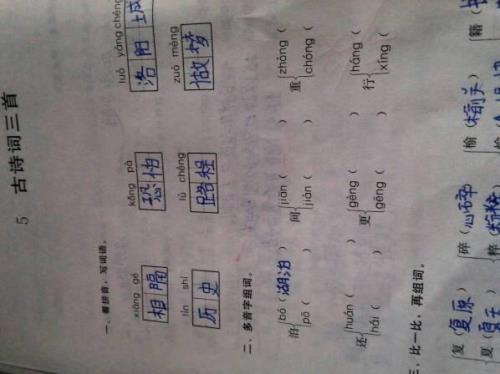 5 古诗词三首
一、看拼音，写词语。
xiāng gé kǒng pà luò yáng chéng
相隔 恐怕 洛阳城
shǐ lù chéng zuò mèng
历史 路程 做梦
二、多音字组词。
泊 bó（湖泊） 间 jiān（ ） 重 zhòng（
pō（ ） jiàn（ ） chóng（
还 huán（ ） 更 gèng（ ） 行 háng（
hái（ ） gēng（ ） xíng（
三、比一比，再组词。
复（复原） 碎（心碎） 榆（榆关） 籍（
夏（夏天） 粹（